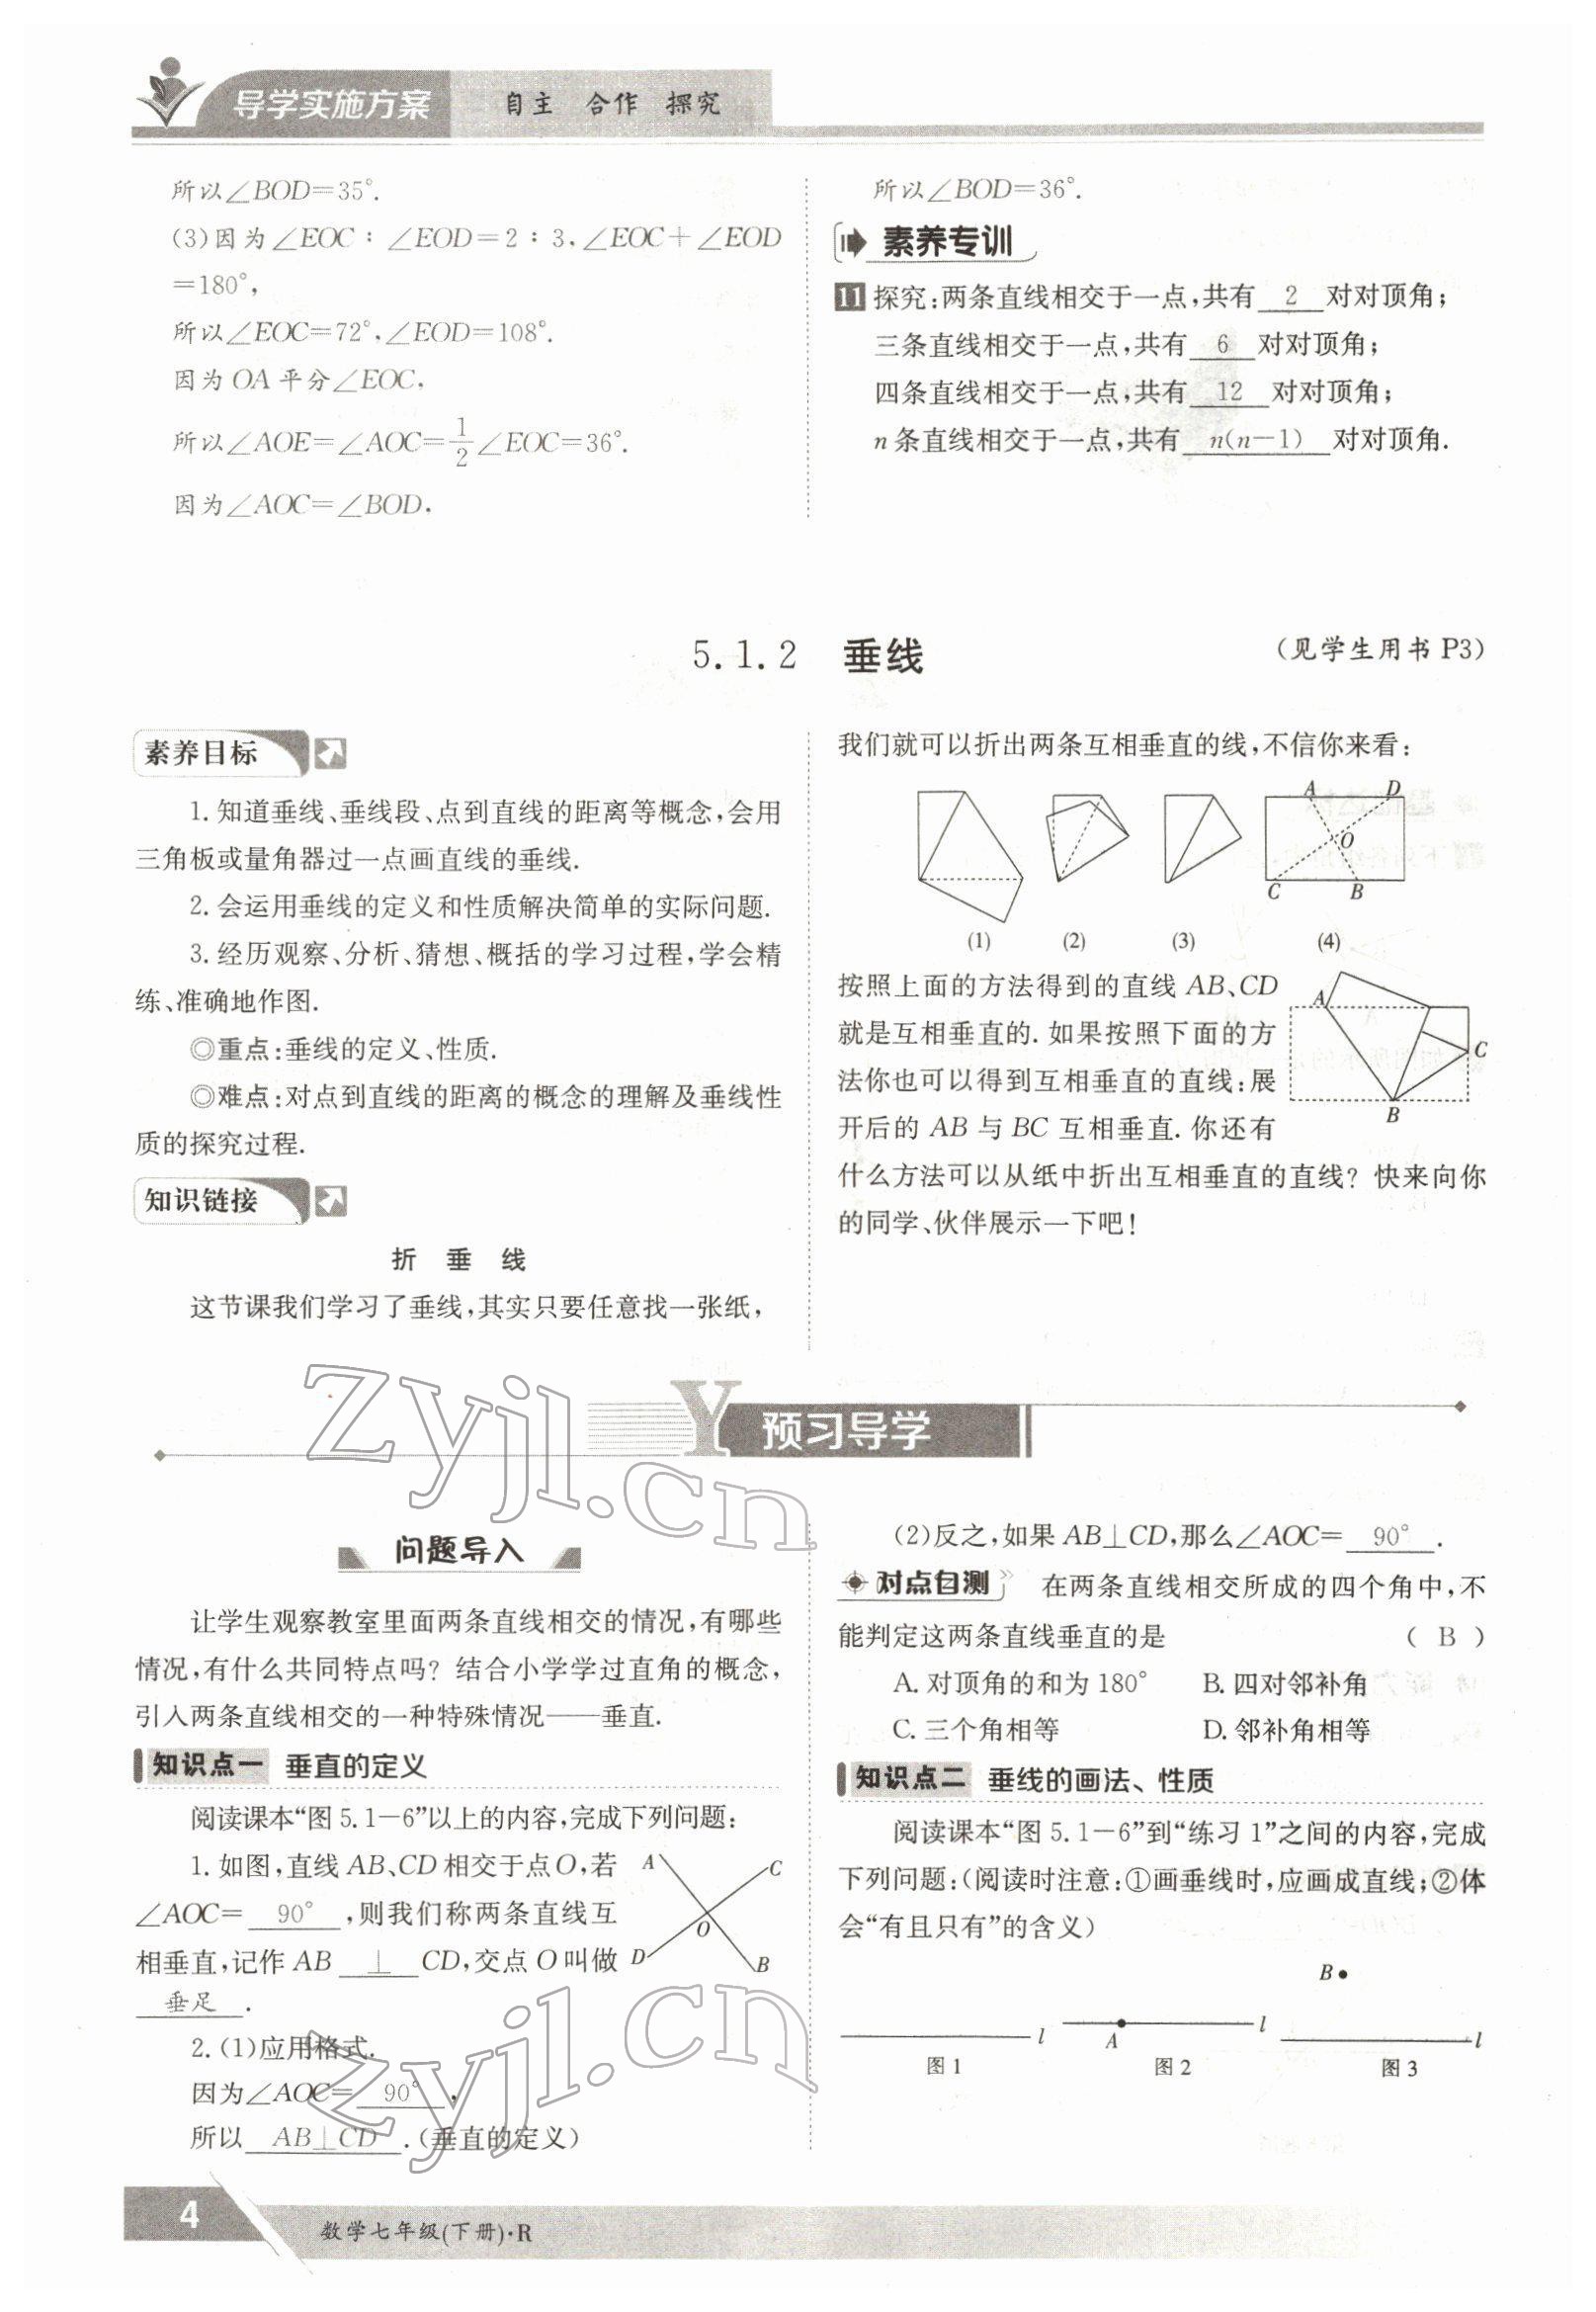 导学实施方案 自主 合作 探究
所以∠BOD=35°.
(3)因为∠EOC∶∠EOD=2∶3,∠EOC+∠EOD
=180°,
所以∠EOC=72°,∠EOD=108°.
因为OA平分∠EOC,
所以∠AOE=∠AOC=1/2∠EOC=36°.
因为∠AOC=∠BOD,
所以∠BOD=36°.
素养专训
11 探究:两条直线相交于一点,共有 2 对对顶角;
三条直线相交于一点,共有 6 对对顶角;
四条直线相交于一点,共有 12 对对顶角;
n条直线相交于一点,共有 n(n-1) 对对顶角.
5.1.2 垂线
(见学生用书P3)
素养目标
1.知道垂线、垂线段、点到直线的距离等概念,会用
三角板或量角器过一点画直线的垂线.
2.会运用垂线的定义和性质解决简单的实际问题.
3.经历观察、分析、猜想、概括的学习过程,学会精
练、准确地作图.
◎重点:垂线的定义、性质.
◎难点:对点到直线的距离的概念的理解及垂线性
质的探究过程.
知识链接
折 垂 线
这节课我们学习了垂线,其实只要任意找一张纸,
我们就可以折出两条互相垂直的线,不信你来看:
A D
O
C B
(1) (2) (3) (4)
按照上面的方法得到的直线AB、CD
就是互相垂直的.如果按照下面的方
法你也可以得到互相垂直的直线:展
开后的AB与BC互相垂直.你还有
什么方法可以从纸中折出互相垂直的直线?快来向你
的同学、伙伴展示一下吧!
A
C
B
Y 预习导学
问题导入
让学生观察教室里面两条直线相交的情况,有哪些
情况,有什么共同特点吗?结合小学学过直角的概念,
引入两条直线相交的一种特殊情况——垂直.
知识点一 垂直的定义
阅读课本“图5.1-6”以上的内容,完成下列问题:
1.如图,直线AB、CD相交于点O,若
∠AOC= 90° ,则我们称两条直线互
相垂直,记作AB ⊥ CD,交点O叫做
垂足 .
A C
O
D B
2.(1)应用格式.
因为∠AOC= 90° ,
所以 AB⊥CD .(垂直的定义)
(2)反之,如果AB⊥CD,那么∠AOC= 90° .
对点自测 在两条直线相交所成的四个角中,不
能判定这两条直线垂直的是 ( B )
A.对顶角的和为180° B.四对邻补角
C.三个角相等 D.邻补角相等
知识点二 垂线的画法、性质
阅读课本“图5.1-6”到“练习1”之间的内容,完成
下列问题:(阅读时注意:①画垂线时,应画成直线;②体
会“有且只有”的含义)
B
l A l l
图1 图2 图3
zyjl.cn
zyjl.cn
4
数学七年级(下册)·R